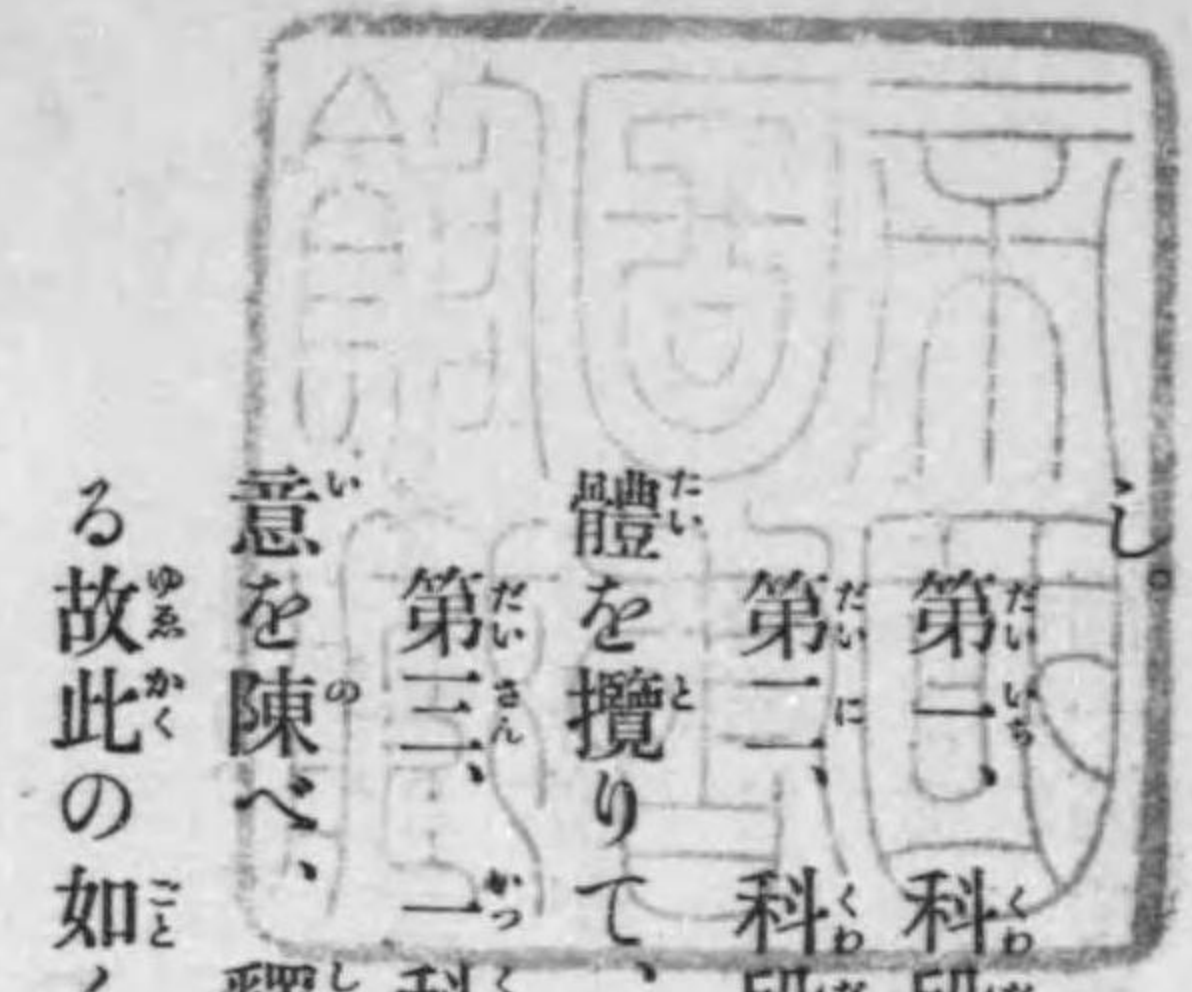 し。
第一、科段
第二、科段
體を攬りて、
第三、一科
意を陳べ、釋
る故此の如く